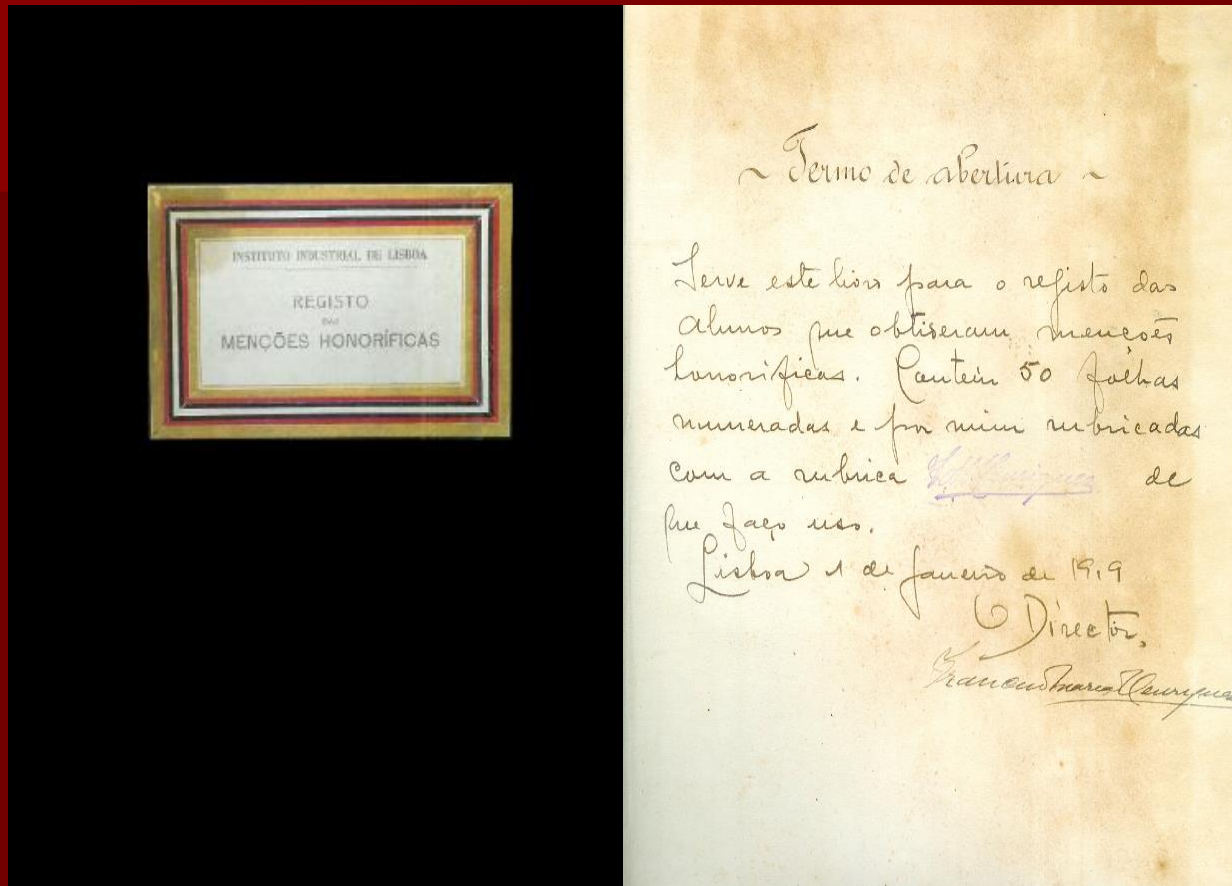 INSTITUTO INDUSTRIAL DE LISBOA
REGISTO
DAS
MENÇÕES HONORÍFICAS
~ Termo de abertura ~
Serve este livro para o registo das
alunos que obtiseram menções
honorificas. Contem 50 fôlhas
numeradas e por mim rubricadas
com a rubrica de
que faço uso.
Lisboa 1 de Janeiro de 1919
O Director,
Francisco Maria Henriques